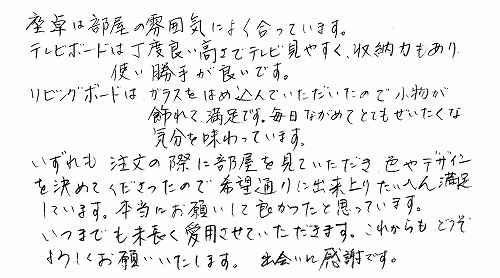 座卓は部屋の雰囲気によく合っています。
テレビボードは丁度良い高さでテレビ見やすく、収納力もあり
使い勝手が良いです。
リビングボードは ガラスをはめ込んでいただいたので小物が
飾れて、満足です。毎日ながめてとてもぜいたくな
気分を味わっています。
いずれも 注文の際に部屋を見ていただき 色やデザイン
を決めてくださったので希望通りに出来上りたいへん満足
しています。本当にお願いして良かったと思っています。
いつまでも末長く愛用させていただきます。これからも どうぞ
よろしくお願いいたします。 出会いに感謝です。